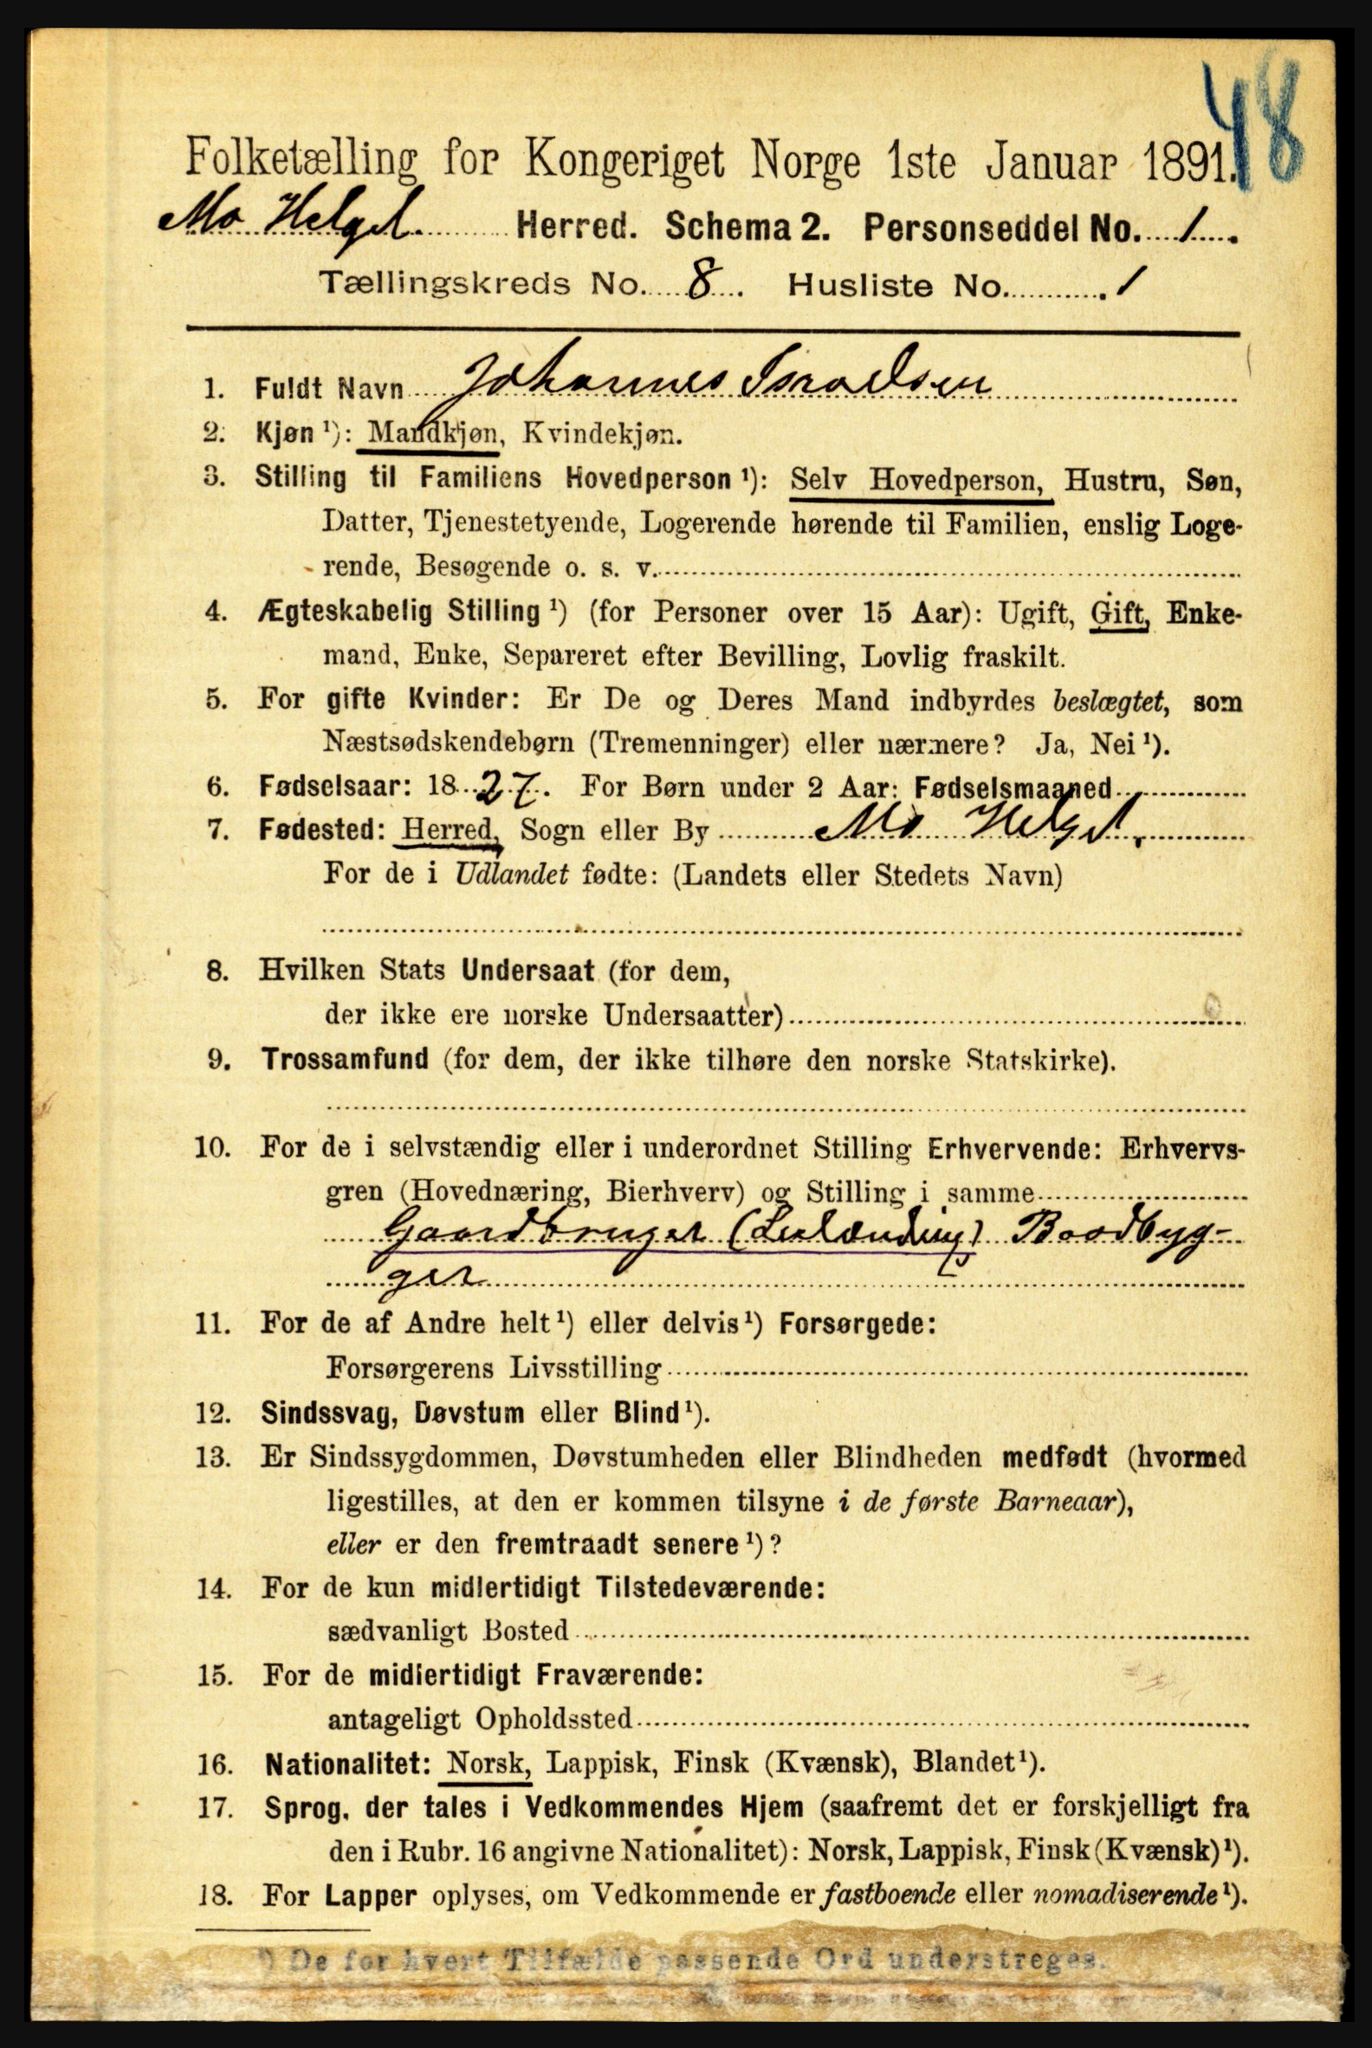 48
Folketælling for Kongeriget Norge 1ste Januar 1891.
Mo Helgel. Herred. Schema 2. Personseddel No. 1.
Tællingskreds No. 8. Husliste No. 1
1. Fuldt Navn Johannes Israelsen
2. Kjøn ¹): Mandkjøn, Kvindekjøn.
3. Stilling til Familiens Hovedperson ¹): Selv Hovedperson, Hustru, Søn,
Datter, Tjenestetyende, Logerende hørende til Familien, enslig Loge-
rende, Besøgende o. s. v.
4. Ægteskabelig Stilling ¹) (for Personer over 15 Aar): Ugift, Gift, Enke-
mand, Enke, Separeret efter Bevilling, Lovlig fraskilt.
5. For gifte Kvinder: Er De og Deres Mand indbyrdes beslægtet, som
Næstsødskendebørn (Tremenninger) eller nærmere? Ja, Nei ¹).
6. Fødselsaar: 1827. For Børn under 2 Aar: Fødselsmaaned
7. Fødested: Herred, Sogn eller By Mo Helgel.
For de i Udlandet fødte: (Landets eller Stedets Navn)
8. Hvilken Stats Undersaat (for dem,
der ikke ere norske Undersaatter)
9. Trossamfund (for dem, der ikke tilhøre den norske Statskirke).
10. For de i selvstændig eller i underordnet Stilling Erhvervende: Erhvervs-
gren (Hovednæring, Bierhverv) og Stilling i samme
Gaardbruger (Leilænding) Baadbyg-
ger
11. For de af Andre helt ¹) eller delvis ¹) Forsørgede:
Forsørgerens Livsstilling
12. Sindssvag, Døvstum eller Blind ¹).
13. Er Sindssygdommen, Døvstumheden eller Blindheden medfødt (hvormed
ligestilles, at den er kommen tilsyne i de første Barneaar),
eller er den fremtraadt senere ¹)?
14. For de kun midlertidigt Tilstedeværende:
sædvanligt Bosted
15. For de midlertidigt Fraværende:
antageligt Opholdssted
16. Nationalitet: Norsk, Lappisk, Finsk (Kvænsk), Blandet ¹).
17. Sprog, der tales i Vedkommendes Hjem (saafremt det er forskjelligt fra
den i Rubr. 16 angivne Nationalitet): Norsk, Lappisk, Finsk (Kvænsk) ¹).
18. For Lapper oplyses, om Vedkommende er fastboende eller nomadiserende ¹).
¹) De for hvert Tilfælde passende Ord understreges.